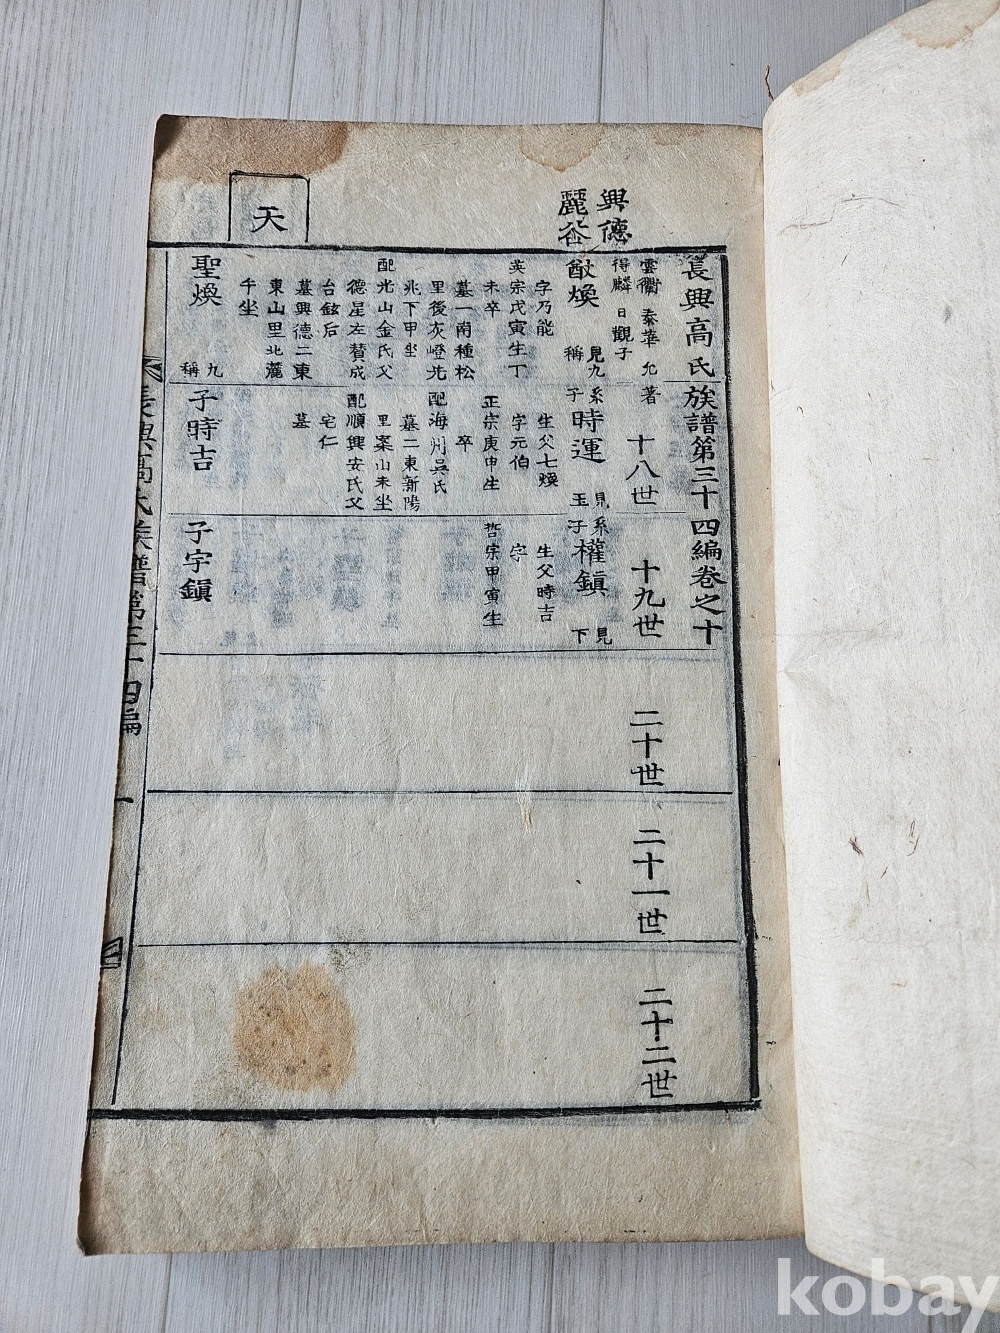 興德
麗谷
長興高氏族譜第三十四編卷之十
雲衢 泰華 允著
得麟 日觀子
十八世
十九世
二十世
二十一世
二十二世
猷煥
見九
稱
字乃能
英宗戊寅生丁
未卒
墓一南種松
里後灰嶝先
兆下甲坐
配光山金氏父
德星左賛成
台鉉后
墓興德二東
東山里北麓
千坐
系子時運
見玉
生父七煥
字元伯
正宗庚申生
卒
配海州吳氏
墓二東新陽
里案山未坐
配順興安氏父
宅仁
墓
系子權鎭
見下
生父時吉
字
哲宗甲寅生
天
聖煥
九稱
子時吉
子宇鎭
長興高氏族譜第三十四編
一
kobay